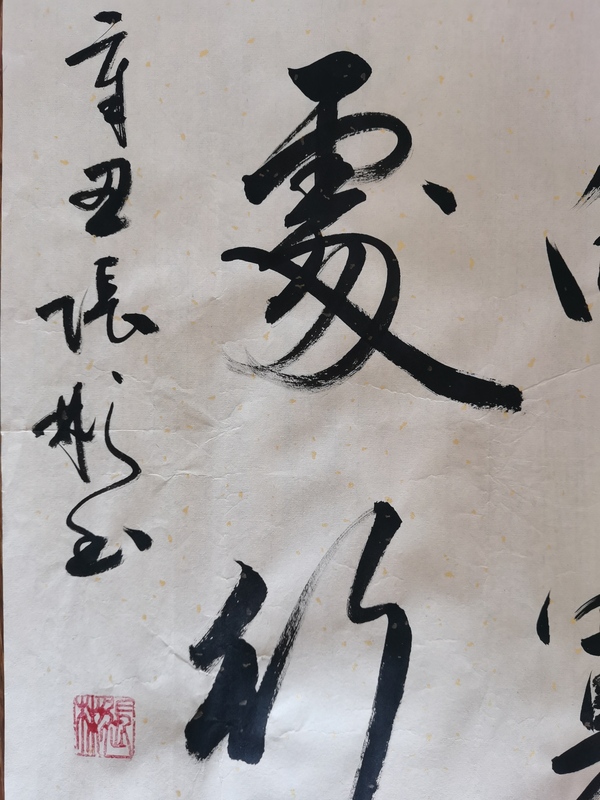 處
行
辛丑張彬書
張彬